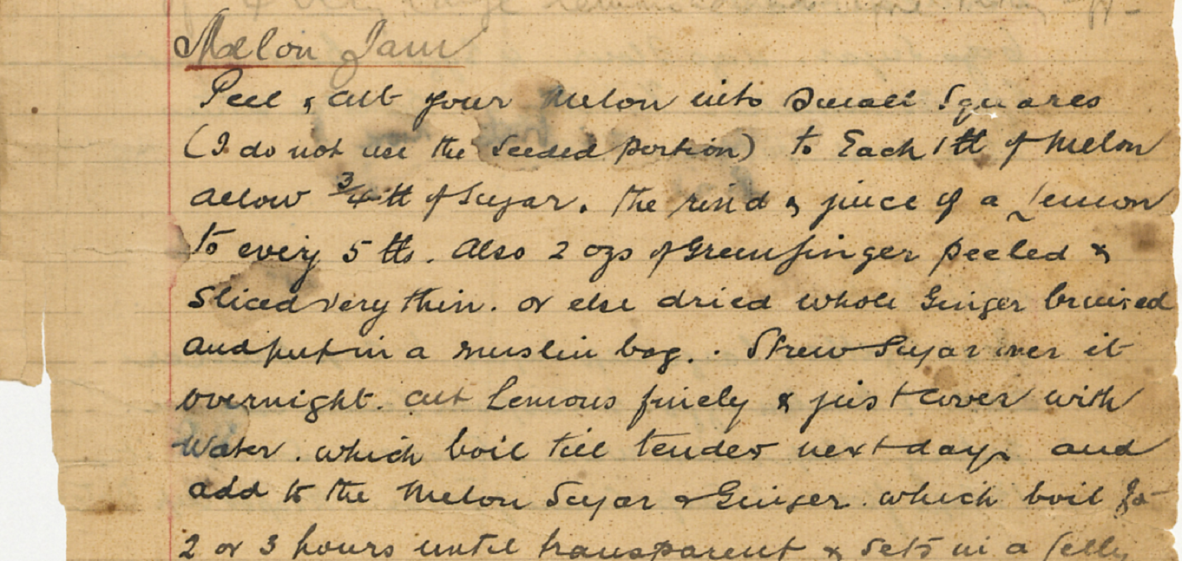 Melon Jam
Peel & cut your Melon into Small Squares
(I do not use the Seeded portion) to Each 1 ℔ of Melon
allow 3/4 ℔ of Sugar. The rind & juice of a Lemon
to every 5 ℔s. Also 2 ozs of Green Ginger peeled &
Sliced very thin. or else dried whole Ginger bruised
and put in a muslin bag. Strew Sugar over it
overnight. cut Lemons finely & just cover with
Water. which boil till tender next day, and
add to the Melon Sugar & Ginger. which boil for
2 or 3 hours until transparent & Sets in a Jelly